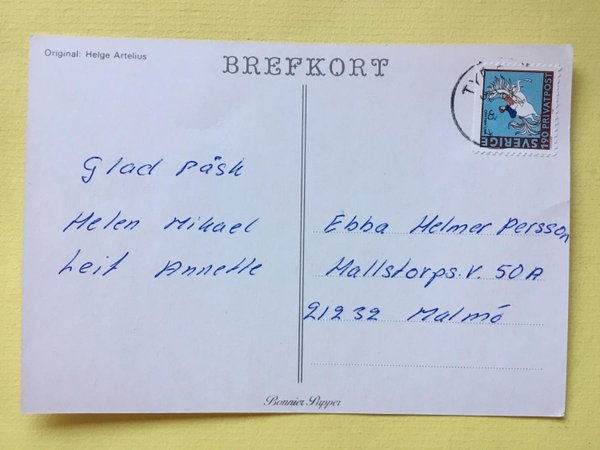 Original: Helge Artelius
BREFKORT
SVERIGE
1.90 PRIVATPOST
Glad Påsk
Helen Mikael
Leif Annette
Ebba Helmer Persson
Mallstorps.v. 50A
21232 Malmö
Bonnier Papper